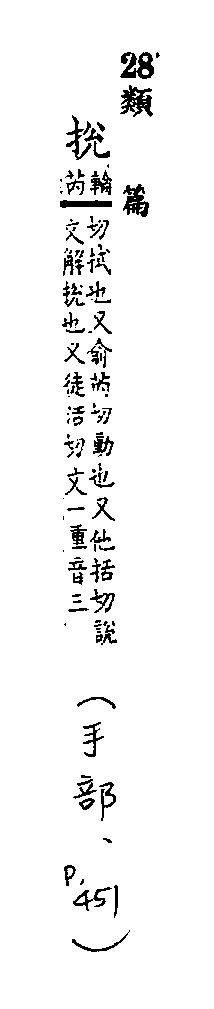 28 類篇
挩
輸芮
切拭也又俞芮切動也又他括切說
文解挩也又徒活切文一重音三
(手部、P.451)